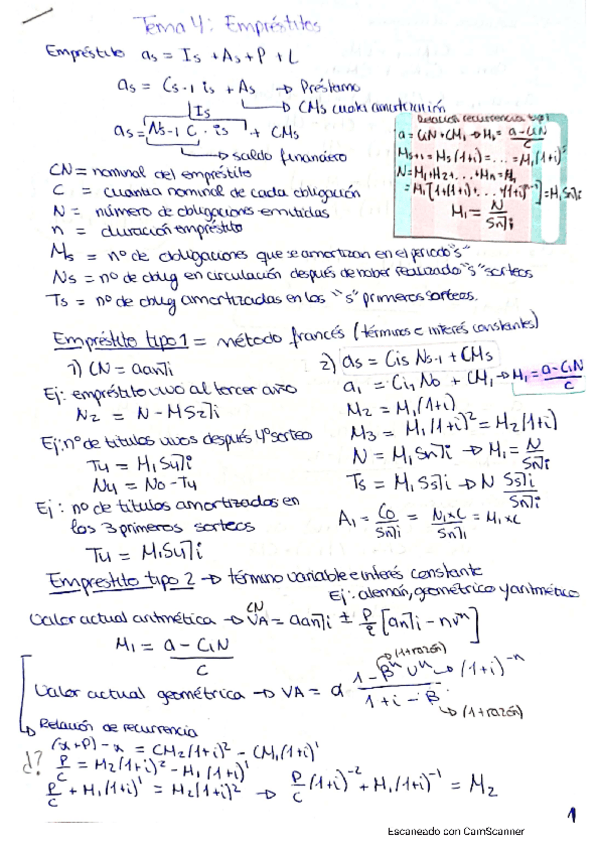 Tema 4: Empréstitos
Empréstito as = Is + As + P + L
as = Cs-1 is + As → Préstamo
Is → CMs cuota amortización
as = Ns-1 C · is + CMs
→ saldo financiero
Relación recurrencia tipo 1
a = CiN + CM1 → M1 = a - CiN / C
Ms+1 = Ms(1+i) = ... = M1(1+i)^s
N = M1 + M2 + ... + Mn = M1
= M1[1+(1+i)+ ... (1+i)^n-1] = M1 Sn⌉i
M1 = N / Sn⌉i
CN = nominal del empréstito
C = cuantía nominal de cada obligación
N = número de obligaciones emitidas
n = duración empréstito
Ms = nº de obligaciones que se amortizan en el periodo "s"
Ns = nº de oblig en circulación después de haber realizado "s" sorteos
Ts = nº de oblig amortizadas en los "s" primeros sorteos.
Empréstito tipo 1 = método francés (términos e interés constantes)
1) CN = a an⌉i
Ej: empréstito vivo al tercer año
N2 = N - MS2⌉i
Ej: nº de títulos vivos después 4º sorteo
T4 = M1S4⌉i
N4 = N0 - T4
Ej: no de títulos amortizados en
los 3 primeros sorteos
T4 = M1S4⌉i
2) as = Cis Ns-1 + CMs
a1 = Ci1 N0 + CM1 → M1 = a - CiN / C
M2 = M1(1+i)
M3 = M1(1+i)² = M2(1+i)
N = M1 Sn⌉i → M1 = N / Sn⌉i
Ts = M1 Ss⌉i → N Ss⌉i / Sn⌉i
A1 = C0 / Sn⌉i = N1×C / Sn⌉i = M1×C
Empréstito tipo 2 → término variable e interés constante
Ej: alemán, geométrico y aritmético
Valor actual aritmética → CN VA = a an⌉i ± P/i [an⌉i - nv^n]
M1 = a - CiN / C
Valor actual geométrica → VA = α 1 - β^n v^n / 1 + i - β
(1+razón)
(1+i)^-n
(1+razón)
Relación de recurrencia
(x+P) - x = CM2(1+i)² - CM1(1+i)¹
¿? P/C = M2(1+i)² - M1(1+i)¹
P/C + M1(1+i)¹ = M2(1+i)² → P/C (1+i)^-2 + M1(1+i)^-1 = M2
1
Escaneado con CamScanner